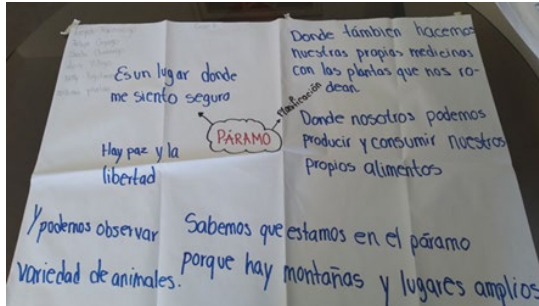 Es un lugar donde
me siento seguro
Hay paz y la
libertad
PÁRAMO
Planificación
Donde támbien hacemos
nuestras propias medicinas
con las plantas que nos ro-
dean
Donde nosotros podemos
producir y consumir nuestros
propios alimentos
Y podemos observar
variedad de animales.
Sabemos que estamos en el páramo
porque hay montañas y lugares amplios